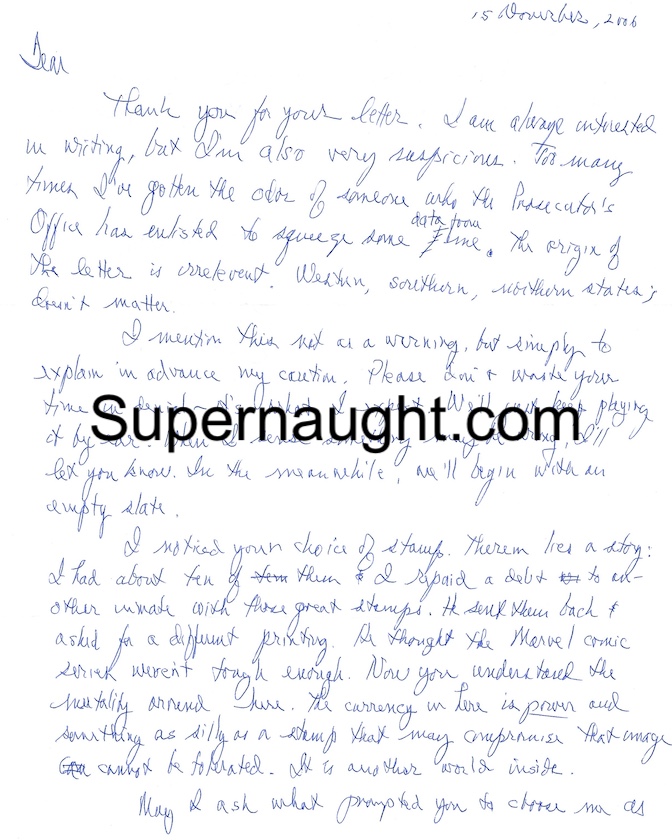 15 November, 2006
Dear
Thank you for your letter. I am always interested
in writing, but I'm also very suspicious. Too many
times I've gotten the odor of someone who the Prosecutor's
Office has enlisted to squeeze some data from me. The origin of
the letter is irrelevent. Western, southern, northern states;
doesn't matter.
I mention this not as a warning, but simply to
explain in advance my caution. Please don't waste your
time in
playing
Supernaught.com
it by ear. When I sense
I'll
let you know. In the meanwhile, we'll begin with an
empty slate.
I noticed your choice of stamp. Therein lies a story:
I had about ten of them & I repaid a debt to an-
other inmate with those great stamps. He sent them back &
asked for a different printing. He thought the Marvel comic
series weren't tough enough. Now you understand the
mentality around here. The currency in here is power and
something as silly as a stamp that may compromise that image
cannot be tolerated. It is another world inside.
May I ask what prompted you to choose me as